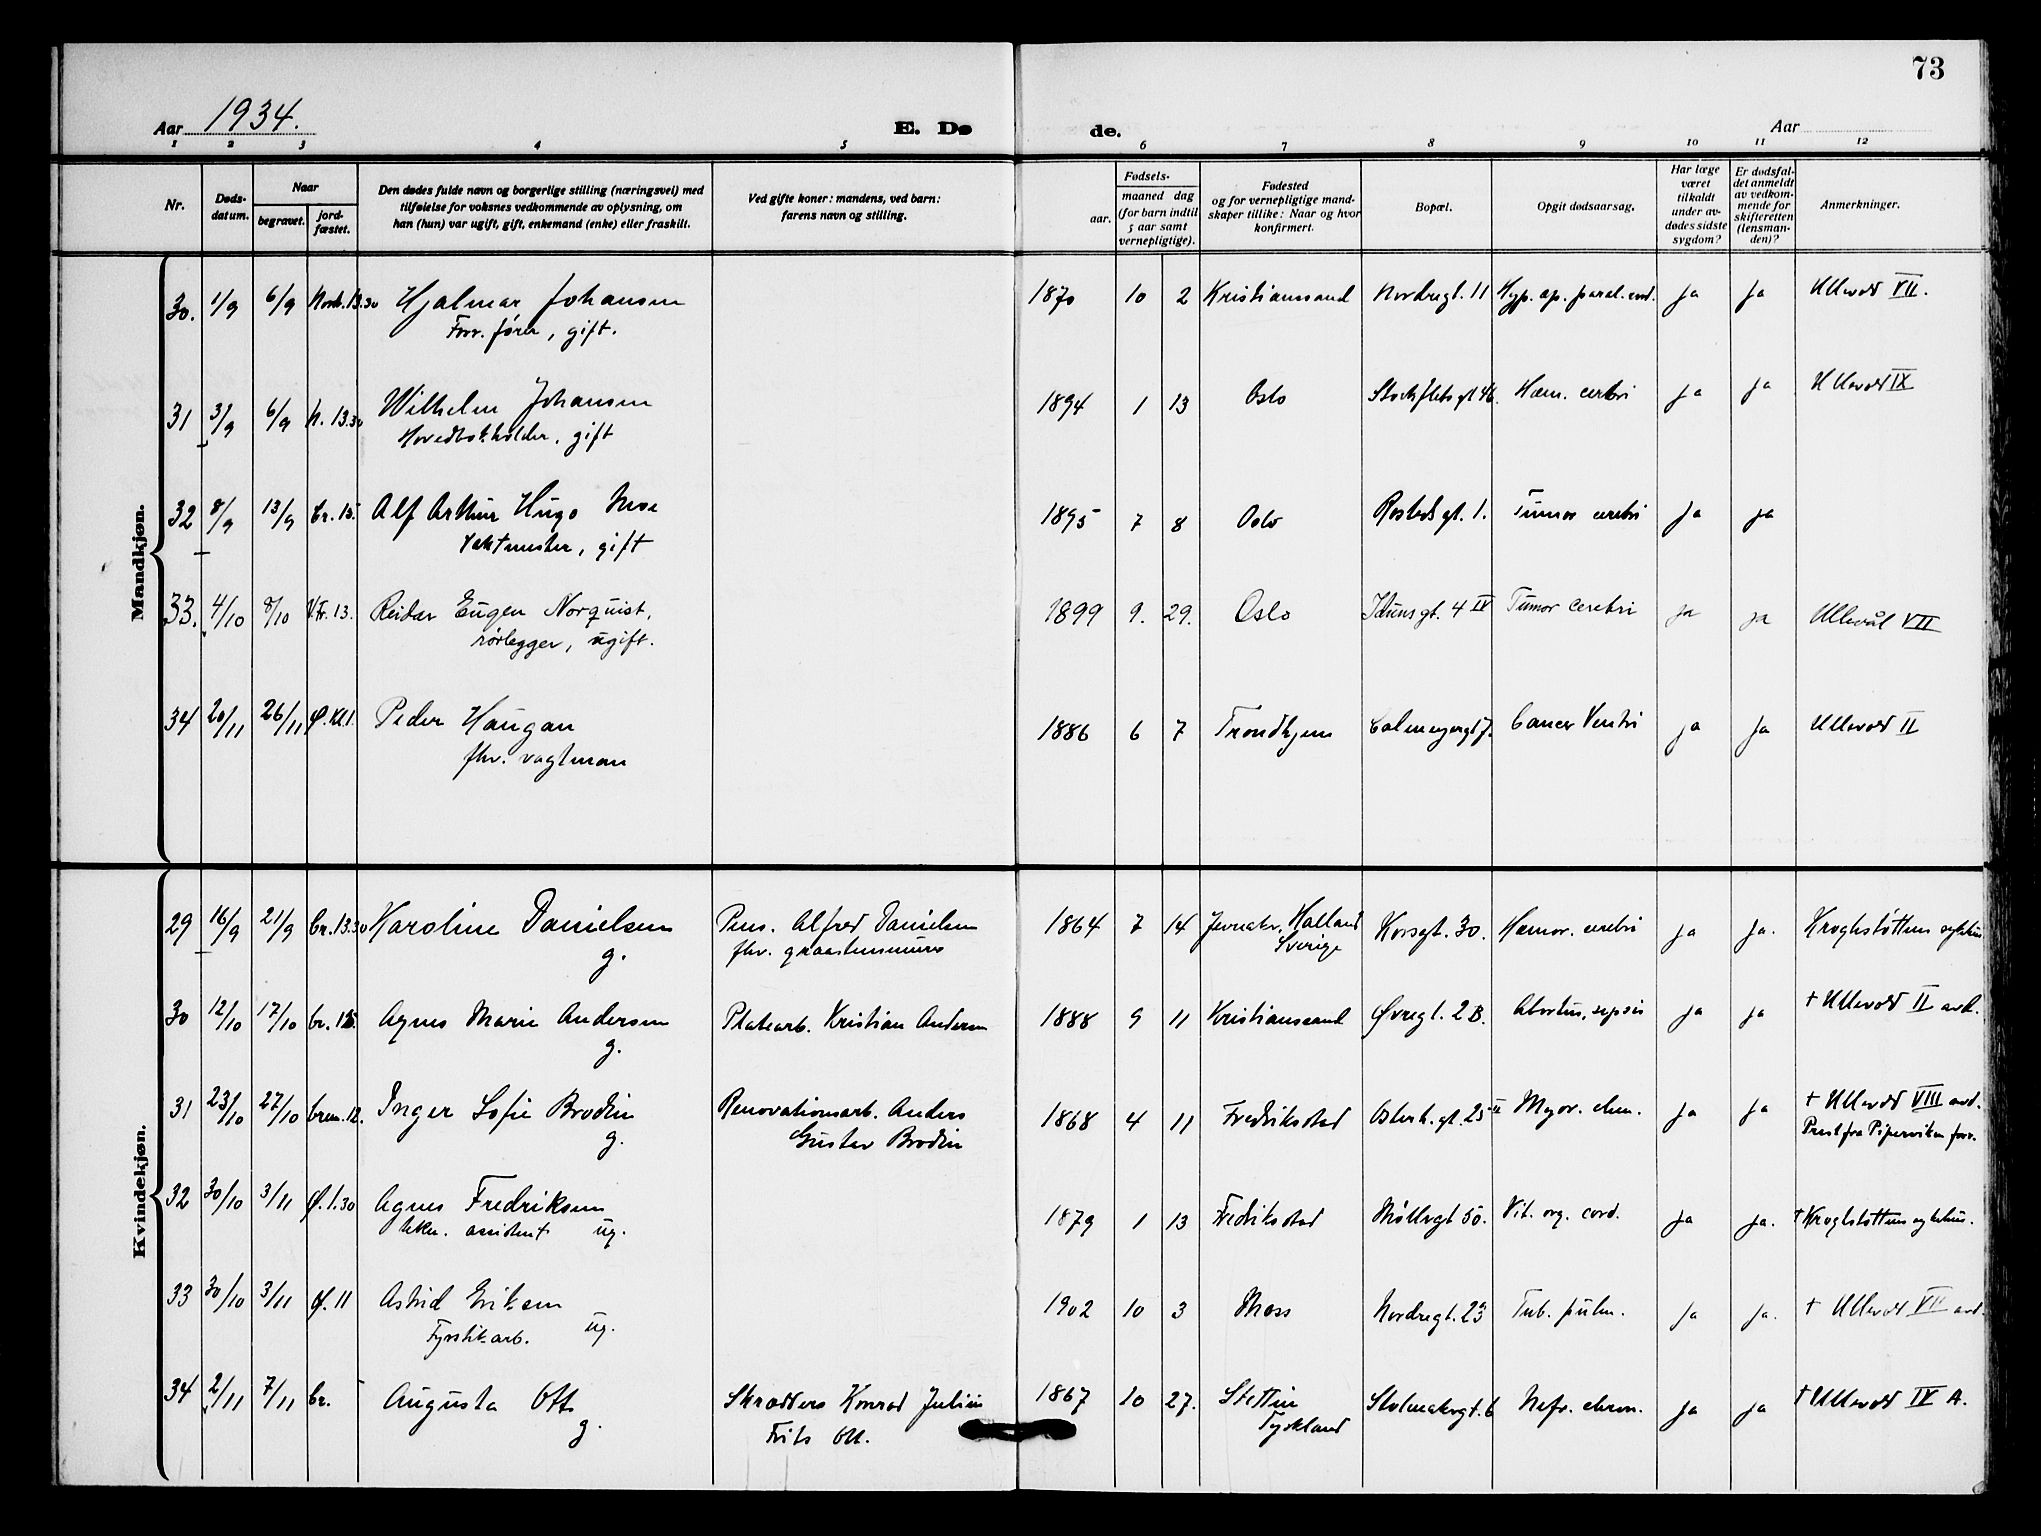 73
Aar 1934.
E. Dø
de.
Aar
1 2 3 4 5 6 7 8 9 10 11 12
Nr.
Døds-
datum.
Naar
begravet.
jord-
fæstet.
Den dødes fulde navn og borgerlige stilling (næringsvei) med
tilføielse for voksnes vedkommende av oplysning, om
han (hun) var ugift, gift, enkemand (enke) eller fraskilt.
Ved gifte koner: mandens, ved barn:
farens navn og stilling.
Fødsels-
aar.
maaned dag
(for barn indtil
5 aar samt
vernepligtige).
Fødested
og for vernepligtige mand-
skaper tillike: Naar og hvor
konfirmert.
Bopæl.
Opgit dødsaarsag.
Har læge
været
tilkaldt
under av-
dødes sidste
sygdom?
Er dødsfal-
det anmeldt
av vedkom-
mende for
skifteretten
(lensman-
den)?
Anmerkninger.
Mandkjøn.
30. 1/9 6/9 Nord. 13.30 Hjalmar Johansen 1870 10 2 Kristianssand Nordregt. 11 Hyp. ap. paral. cord. ja ja Ullevold VII.
Forr. fører, gift.
31 3/9 6/9 N. 13.30 Wilhelm Johansen 1894 1 13 Oslo Stockflets gt 46. Hæm. cerebri ja ja Ullevold IX
Hovedbokholder, gift
32 8/9 13/9 Cr. 15. Alf Arthur Hugo Moe 1895 7 8 Oslo Rosteds gt. 1. Tumor cerebri ja ja
Vaktmester, gift
33. 4/10 8/10 V.Fr. 13. Reidar Eugen Norquist, 1899 9. 29. Oslo Idunsgt. 4 IV Tumor cerebri ja ja Ullevål VII
rørlegger, ugift.
34 20/11 26/11 Ø. Kl 1. Peder Haugan 1886 6 7 Trondhjem Calmeyergt 7. Cancer Ventri ja ja Ullevold II
fhv. vagtman
Kvindekjøn.
29 16/9 21/9 Cr. 13.30 Karoline Danielsen Pens. Alfred Danielsen 1864 7 14 Halland Korsgt. 30. Hæmor. cerebri ja ja. Kroghstøttens sykehus
g. fhv. graastensmurer Sverige
30 12/10 17/10 Cr. 15. Agnes Marie Andersen Platearb. Kristian Andersen 1888 9 11 Kristianssand Øvregt. 2 B. Abortus, sepsis ja ja + Ullevold II avd.
g.
31 23/10 27/10 Crem. 12. Inger Sofie Brodin Renovationsarb. Anders 1868 4 11 Fredrikstad Osterh. gt. 25 II Myoc. chron. ja ja + Ullevold VIII avd.
g. Gustav Brodin Prest fra Piperviken forr.
32 30/10 3/11 Ø. 1.30 Agnes Fredriksen 1879 1 13 Fredrikstad Møllergt 50. Vit. org. cord. ja ja. + Kroghstøttens sykehus.
assistent ug.
33 30/10 3/11 Ø. 11 Astrid Eriksen 1902 10 3 Moss Nordregt. 23 Tub. pulm. ja ja. + Ullevold VII avd.
Fyrstikarb. ug.
34 2/11 7/11 Cr. Augusta Ott Skrædders Konrad Julius 1867 10 27. Stettin Stolmakergt. 6 Nefr. chron. ja ja + Ullevold IX A.
g. Frits Ott. Tyskland